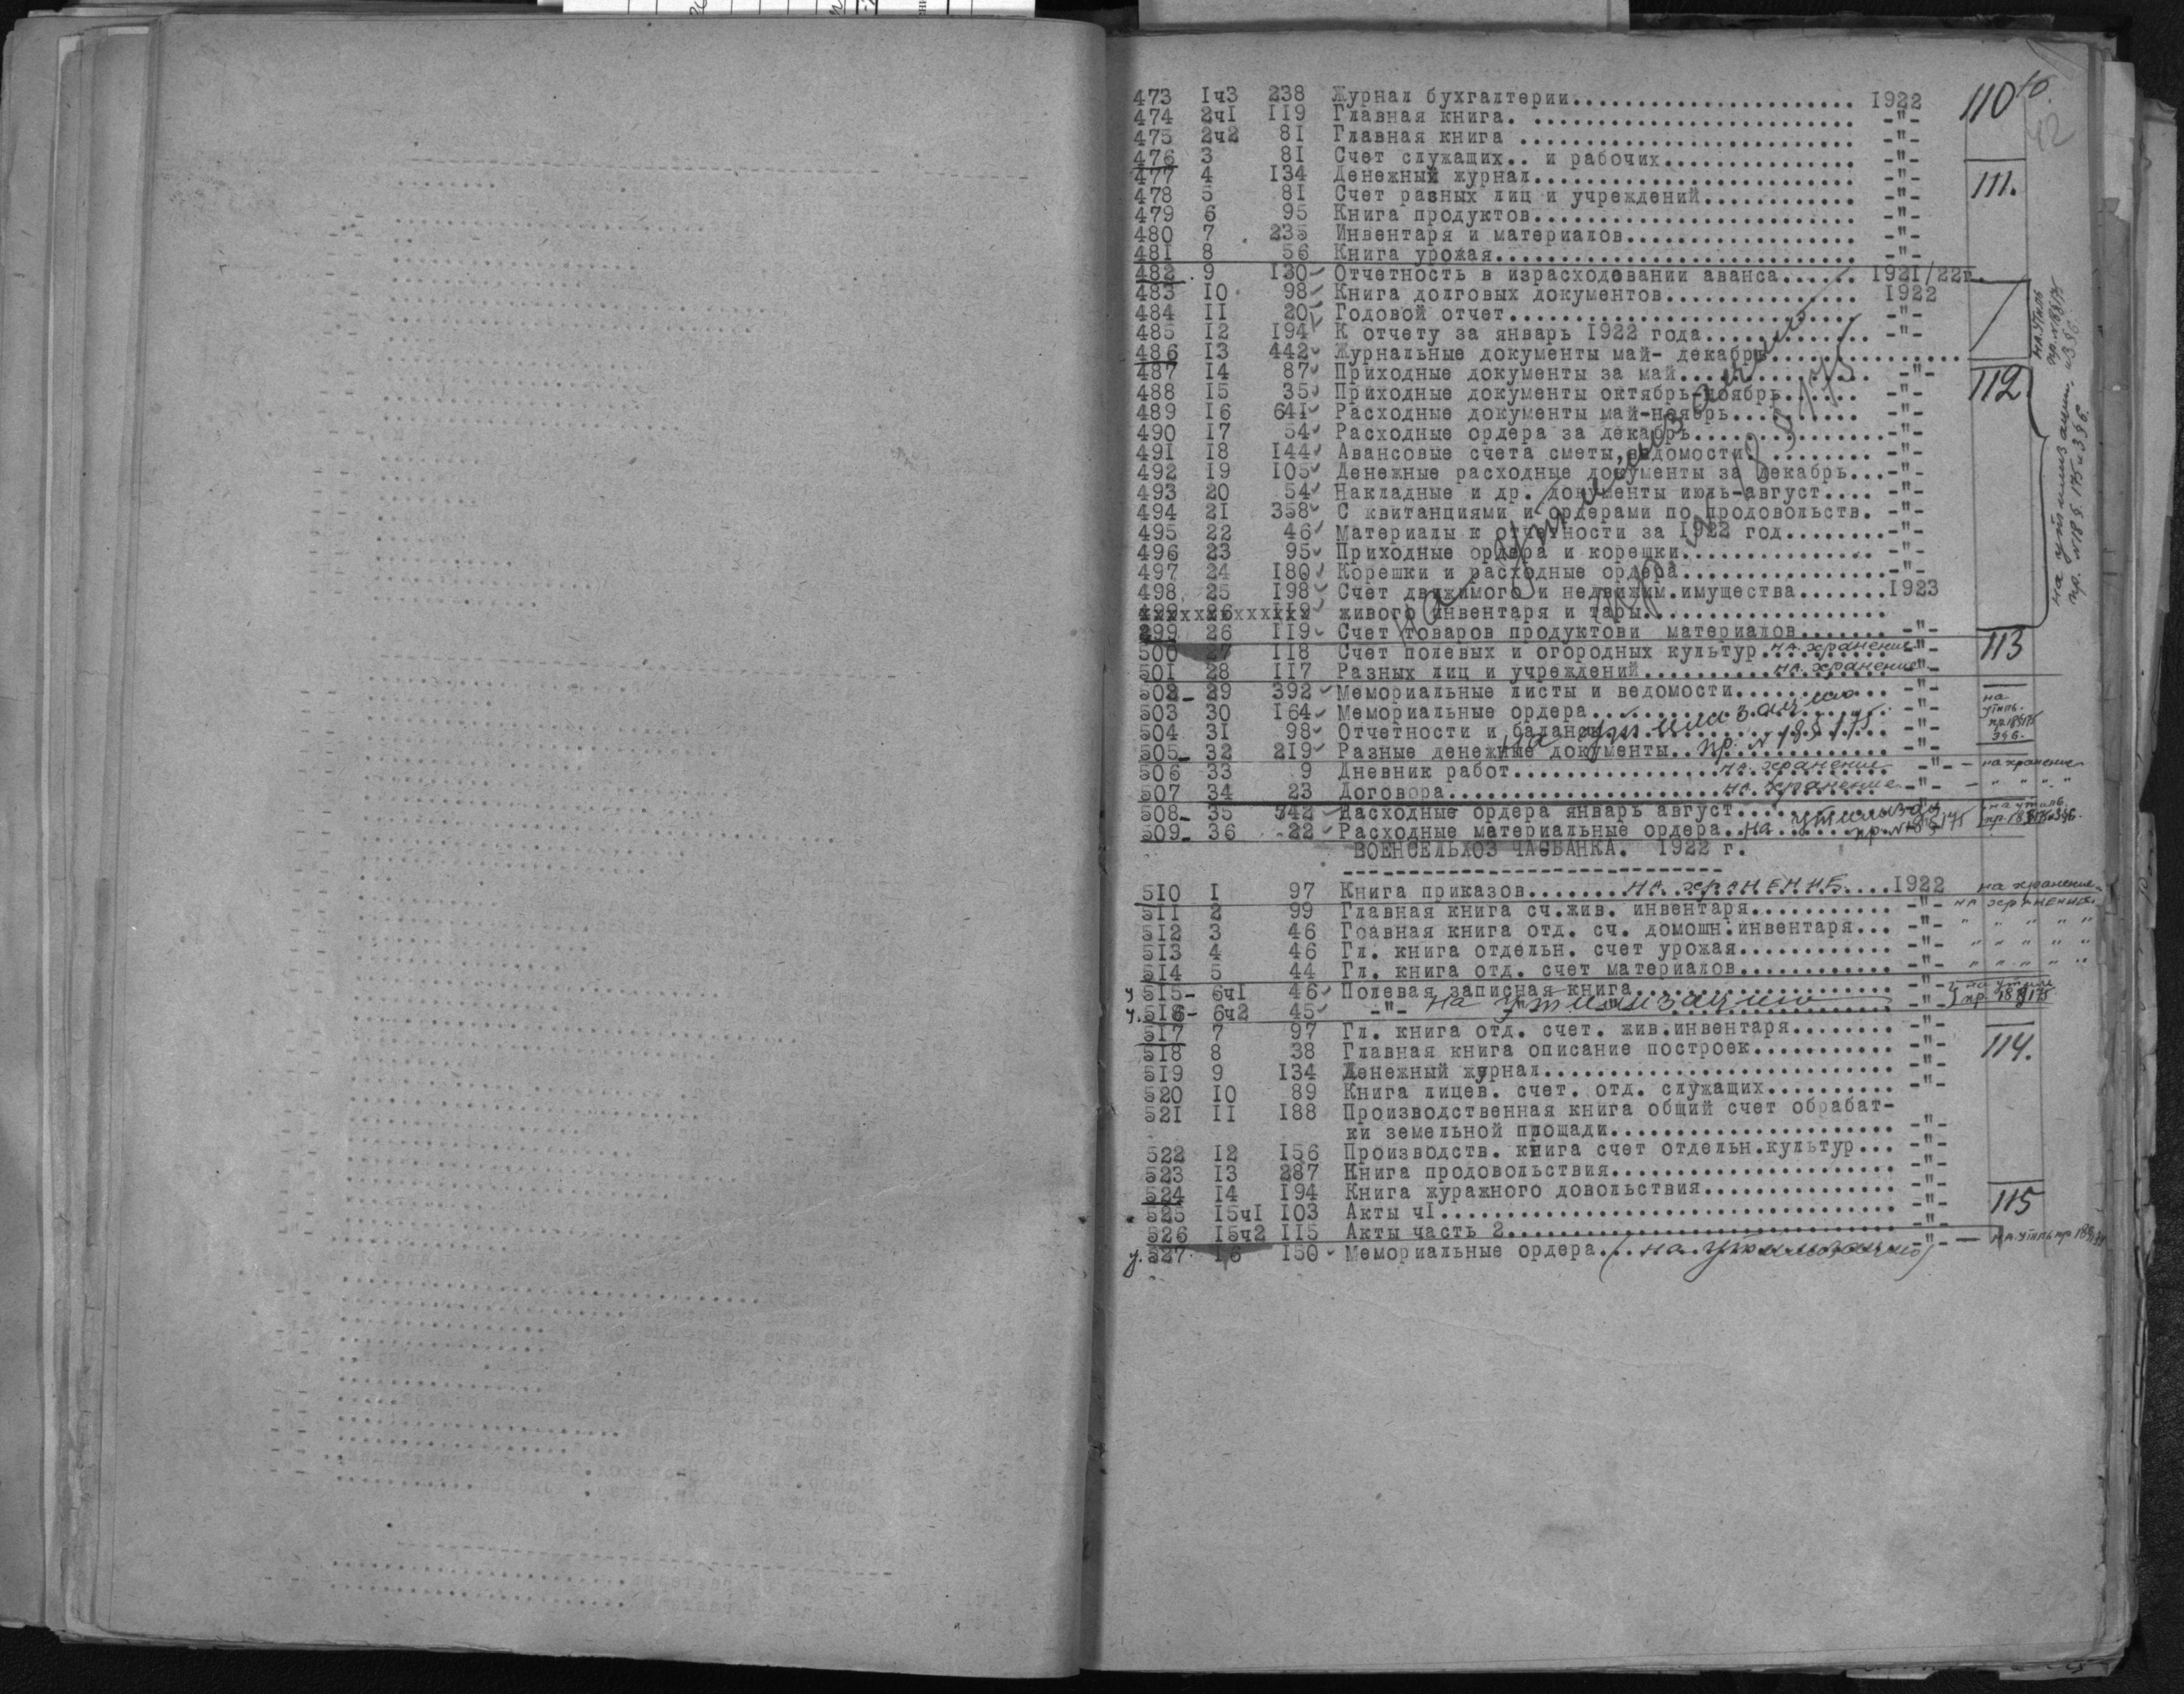 473 1ч3 238 Журнал бухгалтерии........................ 1922 110
474 2ч1 119 Главная книга. ........................... -"- 42
475 2ч2 81 Главная книга ............................ -"-
476 3 81 Счет служащих.. и рабочих................ -"-
477 4 134 Денежный журнал........................... -"- 111.
478 5 81 Счет разных лиц и учреждений............. -"-
479 6 95 Книга продуктов........................... -"-
480 7 235 Инвентаря и материалов................... -"-
481 8 56 Книга урожая.............................. -"-
482 9 130 Отчетность в израсходовании аванса...... 1921/22г.
483 10 98 Книга долговых документов................ 1922
484 11 20 Годовой отчет............................. -"-
485 12 194 К отчету за январь 1922 года.............. -"-
486 13 442 Журнальные документы май- декабрь................
487 14 87 Приходные документы за май................ -"- 112.
488 15 35 Приходные документы октябрь-ноябрь...... -"-
489 16 641 Расходные документы май-ноябрь........... -"-
490 17 54 Расходные ордера за декабрь................-"-
491 18 144 Авансовые счета сметы,ведомости. ........ -"-
492 19 105 Денежные расходные документы за декабрь...-"-
493 20 54 Накладные и др. документы июль-август.... -"-
494 21 358 С квитанциями и ордерами по продовольств. -"-
495 22 46 Материалы к отчетности за 1922 год........-"-
496 23 95 Приходные ордера и корешки................ -"-
497 24 180 Корешки и расходные ордера.................-"-
498 25 198 Счет движимого и недвижим.имущества.......1923
живого инвентаря и тары.....................
299 26 119 Счет товаров продуктови материалов....... -"-
500 27 118 Счет полевых и огородных культур. на хранение -"- 113
501 28 117 Разных лиц и учреждений. на хранение -"-
502 29 392 Мемориальные листы и ведомости........... -"-
503 30 164 Мемориальные ордера....................... -"-
504 31 98 Отчетности и балансы...................... -"-
505 32 219 Разные денежные документы................. -"-
на утилизацию пр. № 18 § 175
на утиль. пр 18 § 175 3 § 6.
506 33 9 Дневник работ. на хранение -"- - на хранение
507 34 23 Договора. на хранение -"- - " " " "
508 35 542 Расходные ордера январь август........ на утиль.
509 36 22 Расходные материальные ордера. на утилизац. пр. №18 § 175
ВОЕНСЕЛЬХОЗ ЧАСБАНКА. 1922 г.
510 1 97 Книга приказов. НА ХРАНЕНИЕ 1922 на хранение
511 2 99 Главная книга сч.жив. инвентаря........... -"- на хранение
512 3 46 Гоавная книга отд. сч. домошн.инвентаря... -"- " " " " "
513 4 46 Гл. книга отдельн. счет урожая............ -"- " " " " "
514 5 44 Гл. книга отд. счет материалов............ -"- " " " " "
у 515 6ч1 46 Полевая записная книга.................... -"- на утиль
у. 516 6ч2 45 -"- на утилизацию -"- пр. 18 § 175
517 7 97 Гл. книга отд. счет. жив.инвентаря........ -"-
518 8 38 Главная книга описание построек........... -"- 114.
519 9 134 Денежный журнал........................... -"-
520 10 89 Книга лицев. счет. отд. служащих.......... -"-
521 11 188 Производственная книга общий счет обрабат-
ки земельной площади...................... -"-
522 12 156 Производств. книга счет отдельн.культур... -"-
523 13 287 Книга продовольствия...................... -"-
524 14 194 Книга журажного довольствия............... -"-
525 15ч1 103 Акты ч1................................... -"- 115
526 15ч2 115 Акты часть 2.............................. -"-
у. 527 16 150 Мемориальные ордера. (на утилизацию) -"- - на утиль пр 18
на утилизацию
на утилизацию. пр. № 18 § 175 и 3 § 6.
на утиль пр. № 18 § 175 и 3 § 6.